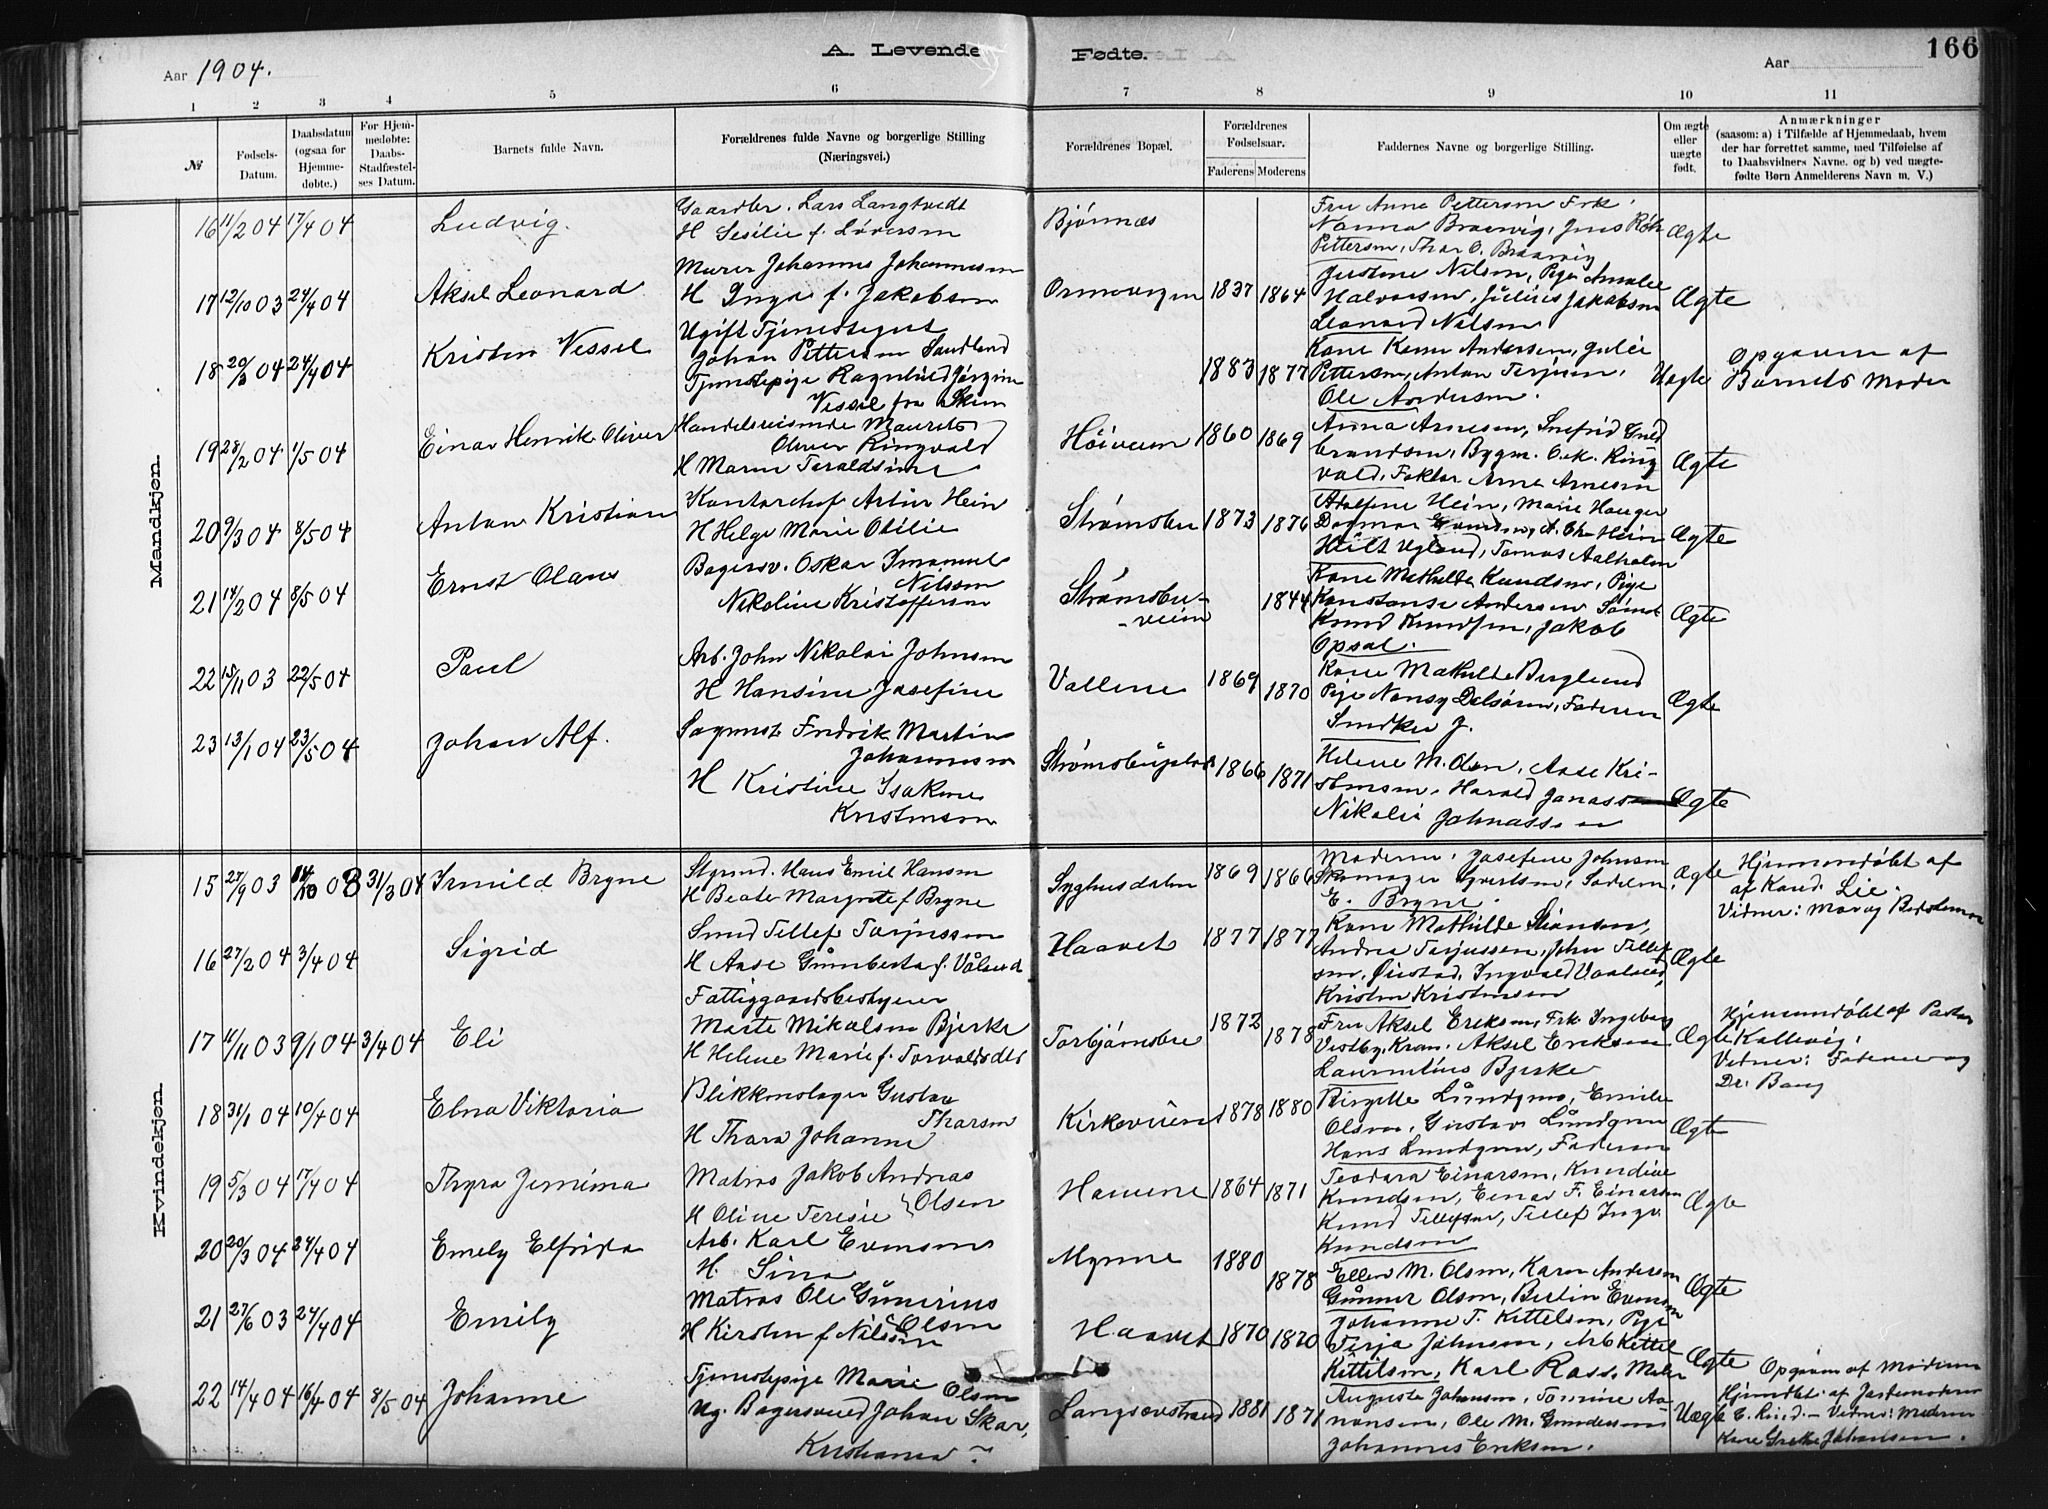 A. Levende Fødte.
166
Aar 1904.
Aar
1 2 3 4 5 6 7 8 9 10 11
№
Fødsels-Datum.
Daabsdatum (ogsaa for Hjemme-døbte.)
For Hjem-medøbte: Daabs-Stadfæstel-ses Datum.
Barnets fulde Navn.
Forældrenes fulde Navne og borgerlige Stilling (Næringsvei.)
Forældrenes Bopæl.
Forældrenes Fødselsaar.
Faderens Moderens
Faddernes Navne og borgerlige Stilling.
Om ægte eller uægte født.
Anmærkninger (saasom: a) i Tilfælde af Hjemmedaab, hvem der har forrettet samme, med Tilføielse af to Daabsvidners Navne. og b) ved uægte-fødte Børn Anmelderens Navn m. V.)
Mandkjøn.
16 11/2 04 17/4 04 Ludvig.
Gaardbr. Lars Langtvedt
H Sesilie f. Sørensen
Bjønnæs
Fru Anne Pettersen Frk.
Nanna Braavig, Jens Röh
Pettersen, Thor O. Braavig
Ægte
17 12/10 03 24/4 04 Aksel Leonard
Murer Johannes Johannesen
H Inga f. Jakobsen
1837 1864
Justine Nilsen, Pige Amalie
Halvorsen, Julius Jakobsen
Leonard Nilsen
Ægte
18 20/3 04 24/4 04 Kristen Vessel
Ugift Tjenestegut
Johan Pettersen Sandlund
Tjenestepige Ragnhild Jørgine
Vessel fra Skien
1883 1877
Kone Karen Andersen, Julie
Pettersen, Anton Terjesen,
Ole Andersen.
Uægte
Opgaven af
Barnets Moder
19 28/2 04 1/5 04 Einar Henrik Oliver
Handelsreisende Maurits
Oliver Ringvold
H Maren Taraldsine
Høiveien 1860 1869
Anna Arnesen, Snefrid Gud
brandsen, Bygm. O.K. Ring
vold, Faktor Arne Arnesen
Ægte
20 9/3 04 8/5 04 Anton Kristian
Kontorchef Artur Hein
H Helga Marie Otilie
Strømsbu 1873 1876
Adolfine Hein, Marie Hauger
Dagmar A. Chr Hein
Ugland, Tomas Aalholm
Ægte
21 14/2 04 8/5 04 Ernst Olaus
Bagersv. Oskar Imanuel
Nilsen
Nikoline Kristoffersen
Strømsbu-
-veien
1844
Kone Mathilde Knudsen, Pige
Konstanse Andersen
Knud Knudsen, Jakob
Opsal.
Ægte
22 15/11 03 22/5 04 Paul
Arb. John Nikolai Johnsen
H Hansine Josefine
Vallene 1869 1870
Kone Mathilde Berglund
Pige Nansy Faderen
Ægte
23 13/1 04 23/5 04 Johan Alf.
Sagmest. Fredrik Martin
Johannesen
H Kristine Isakine
Kristensen
1866 1871
Helene M. Olsen, Aase Kri-
stensen, Harald Jonassen
Nikolai Johnassen
Ægte
Kvindekjøn.
15 27/9 03 31/3 04 Irmild Bryne
Styrmd. Hans Emil Hansen
H Beate Margrete f Bryne
Syghusdalen 1869 1866
Moderen, Josefine Johnsen
Skomager
E. Bryne.
Ægte
Hjemmedøbt af
af Kand. Lie.
Vidner:
16 27/2 04 3/4 04 Sigrid
Smed Tellef Torjussen
H Aase Gunberta f. Våland
Haavet 1877 1877
Kone Mathilde
Andrea Torjussen, John Tellef
sen, Øiestad, Ingvald Vaaland,
Kristen Kristensen
Ægte
17 11/11 03 9/1 04 3/4 04 Eli
Fattiggaardsbestyrer
Marte Mikalsen Bjerke
H Helene Marie f. Torvaldsdtr
Torbjørnsbu 1872 1878
Fru Aksel Eriksen, Frk Ingeborg
Vestby, Aksel Eriksen
Laurentius Bjerke
Ægte
Hjemmedøbt af Pastor
Kallevig.
Vidner: Faderen og
Dr. Bang
18 31/1 04 10/4 04 Elna Viktoria
Blikkenslager Gustav
Thorsen
H Thora Johanne
Kirkeveien 1878 1880
Birgitte Lundgren, Emilie
Olsen, Gustav Lundgren
Hans Lundgren, Faderen
Ægte
19 5/3 04 17/4 04 Thyra Jemima
Matros Jakob Andreas
Olsen
H Oline Teresie
Havene 1864 1871
Teodora Einarsen, Knudine
Knudsen, Einar F. Einarsen
Knud Tellefsen, Tellef Ingv.
Knudsen
Ægte
20 20/3 04 24/4 04 Emely Elfrida
Arb. Karl Evensen
H. Sina
Myrene 1880 1878
Ellen M. Olsen, Karen Andersen
Gunner Olsen, Berlin Evensen
Ægte
21 27/6 03 24/4 04 Emily
Matros Ole Gunerius
Olsen
H Kirsten f Nilsson
Haavet 1870 1870
Johanne T. Kittelsen, Pige
Terja Johnsen, Arb Kittel
Kittelsen, Karl Rass. Maler
Ægte
22 14/4 04 16/4 04 8/5 04 Johanne
Tjenestepige Marie Olsen
Ug. Bagersvend Johan Skar,
Kristiania
Langsævstrand 1881 1871
Augusta Johansen, Tomine Aa-
nonsen, Ole M. Gundersen
Johannes Eriksen.
Uægte
Opgaven af Moderen
Hjemdøbt af Jordemoderen
E. Rind. – Vidner: Moderen
Kone Grethe Johansen.